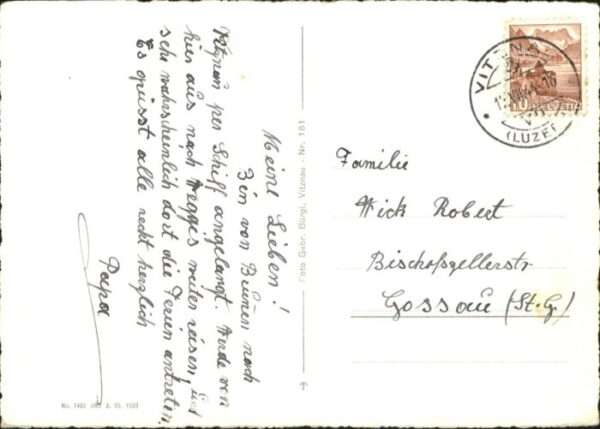 Meine Lieben!
Bin von Brunnen nach
Vitznau per Schiff angelangt. Werde von
hier aus nach Weggis weiter reisen, und
sehr wahrscheinlich dort die Ferien antreten.
Es grüsst alle recht herzlich
Papa
Foto Gebr. Bürgi, Vitznau - Nr. 181
Familie
Wick Robert
Bischofszellerstr
Gossau (St. G.)
VITZNAU
(LUZE
10
HELVETIA